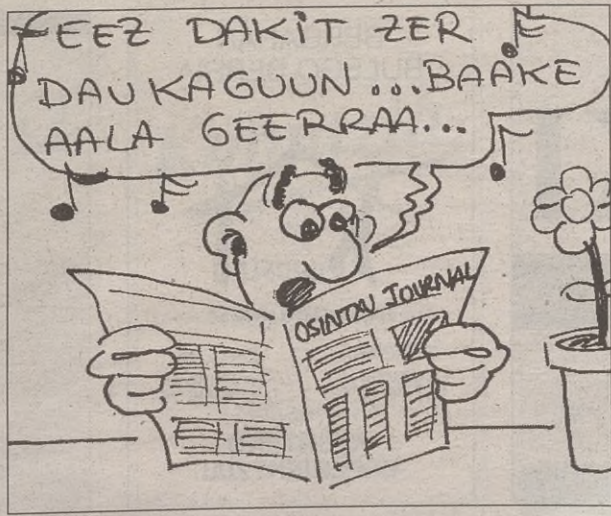 EEZ DAKIT ZER
DAUKAGUUN...BAAKE
AALA GEERRAA...
OSINTXU JOURNAL